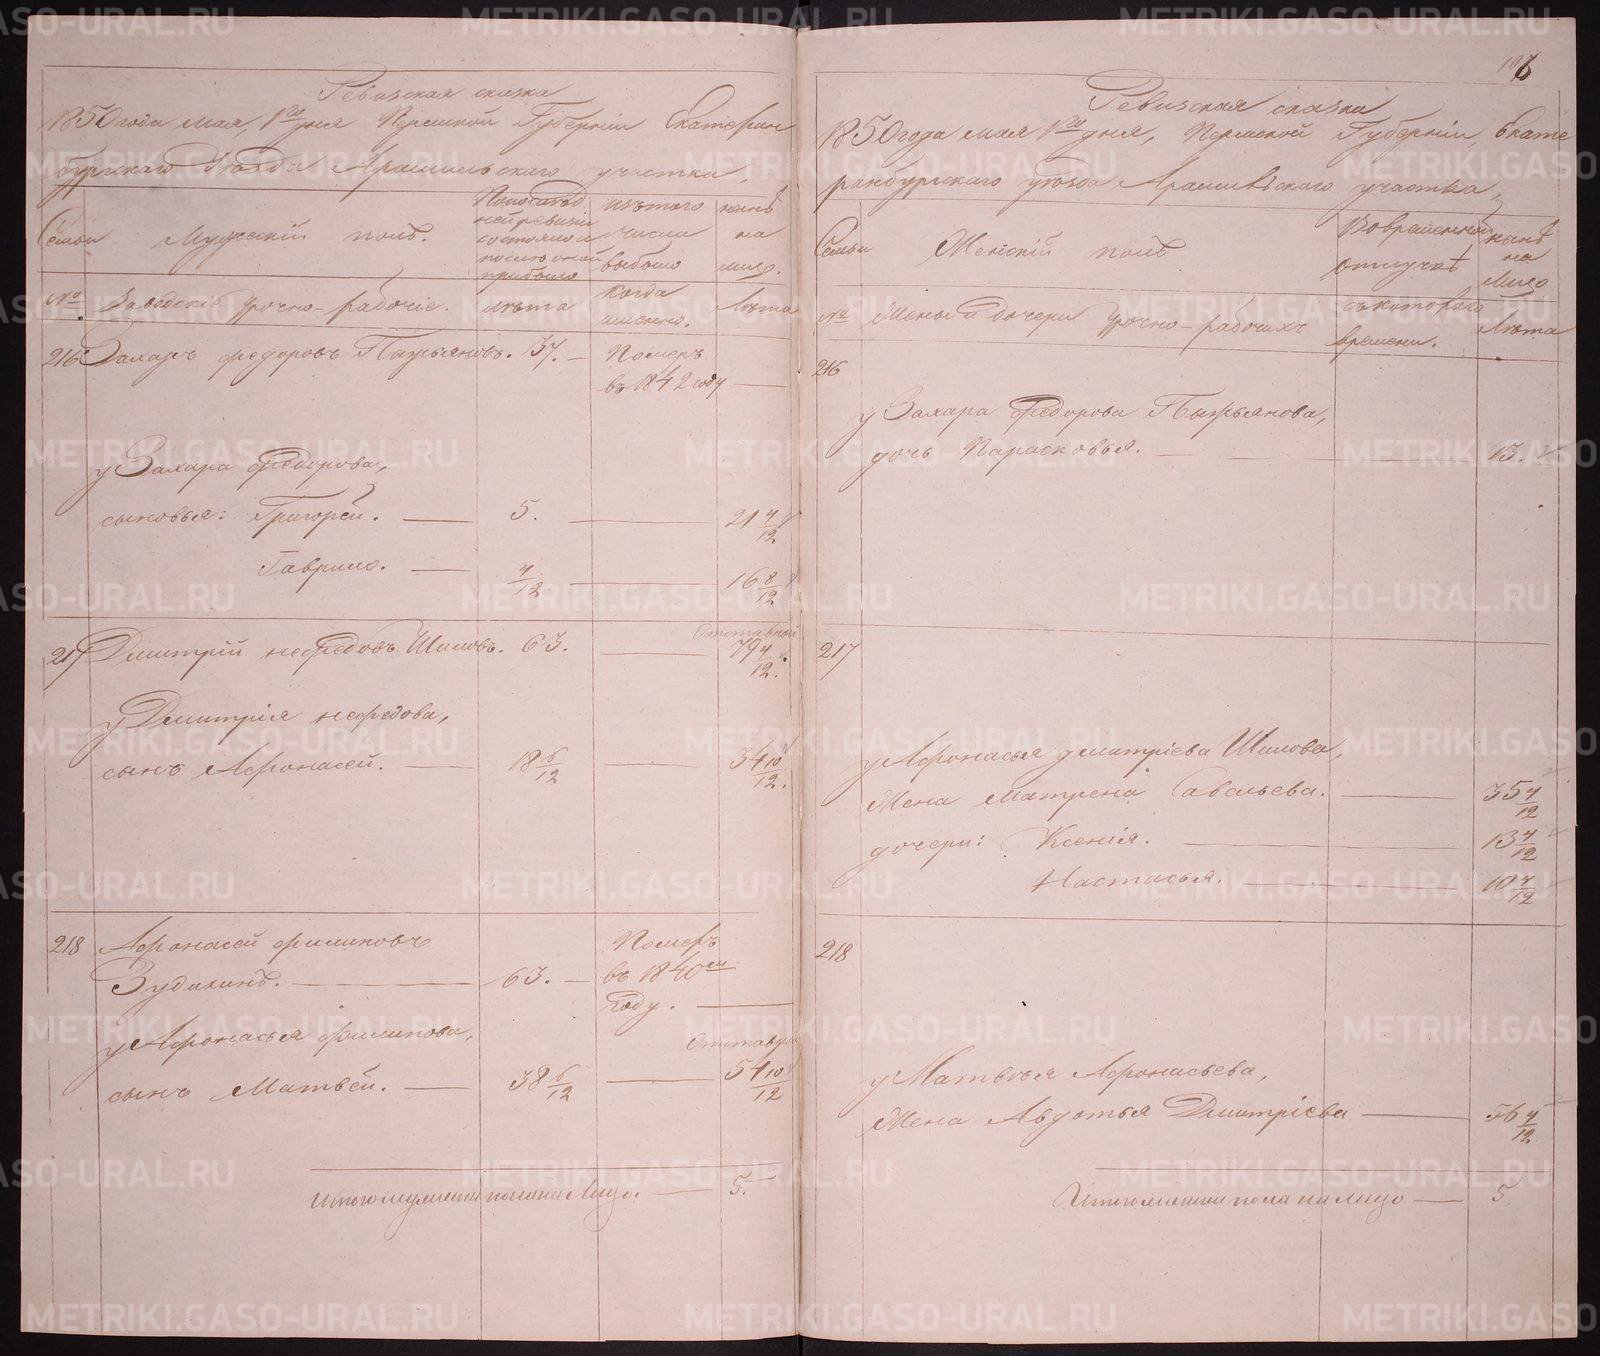 Ревизская сказка
1850 года мая, 1го дня Пермской Губернiи Екатерин
бургскаго Уѣзда Арамильскаго участка,
Семьи
Мужескiй полъ.
По последней ревизiи состояло и после оной прибыло
изъ того числа выбыло
нынѣ на лицо.
№
Заводскiе урочно-рабочiе.
лѣта
когда именно.
Лѣта
216 Захаръ федоровъ Пырьяновъ. 37. — Померъ
въ 1842 году —
у Захара федорова,
сыновья: Григорей. — 5. — 21 4/12
Гаврило. — 4/12 — 16 8/12
Отставной
217 Дмитрiй нефедовъ Шиловъ. 63. — 79 4/12.
у Дмитрiя нефедова,
сынъ Афонасей. — 18 6/12 — 34 10/12.
218 Афонасей филиповъ Померъ
Зудихинъ. — 63. — въ 1840ем
году. —
у Афонасья филипова,
сынъ Матвей. — 38 6/12 — 54 10/12
Итого мужеска пола на Лицо. — 5.
Ревизская сказка
1850 года мая 1го дня, Пермской Губернiи, Екате
ринбургскаго уѣзда Арамильскаго участка,
Семьи
Женскiй полъ
Во временной отлучкѣ
нынѣ на лицо
№
Жены и дочери урочно-рабочихъ
съ котораго времени.
Лѣта
216
у Захара федорова Пырьянова,
дочь Парасковья. — 13.
217
у Афонасья дмитрiева Шилова,
Жена Матрена Савельева. — 35 4/12
дочери: Ксенiя. — 13 4/12
Настасья. — 10 4/12
218
у Матвѣя Афонасьева,
Жена Авдотья Дмитрiева — 56 4/12
Итого женска пола на лицо — 5
METRIKI.GASO-URAL.RU